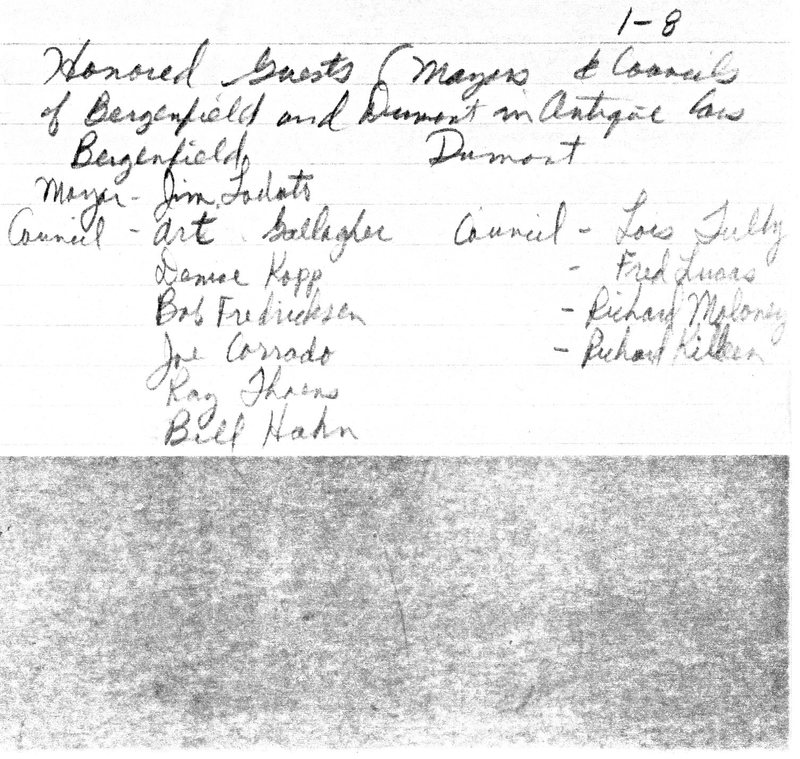 1-8
Honored Guests (Mayors & Councils
of Bergenfield and Dumont in Antique Cars
Bergenfield Dumont
Mayor - Jim Lodato
Council - Art Gallagher Council - Lois Tully
Denise Kopp - Fred Lucas
Bob Fredricksen - Richard Moloney
Joe Corrado - Richard Killeen
Ray
Bill Hahn